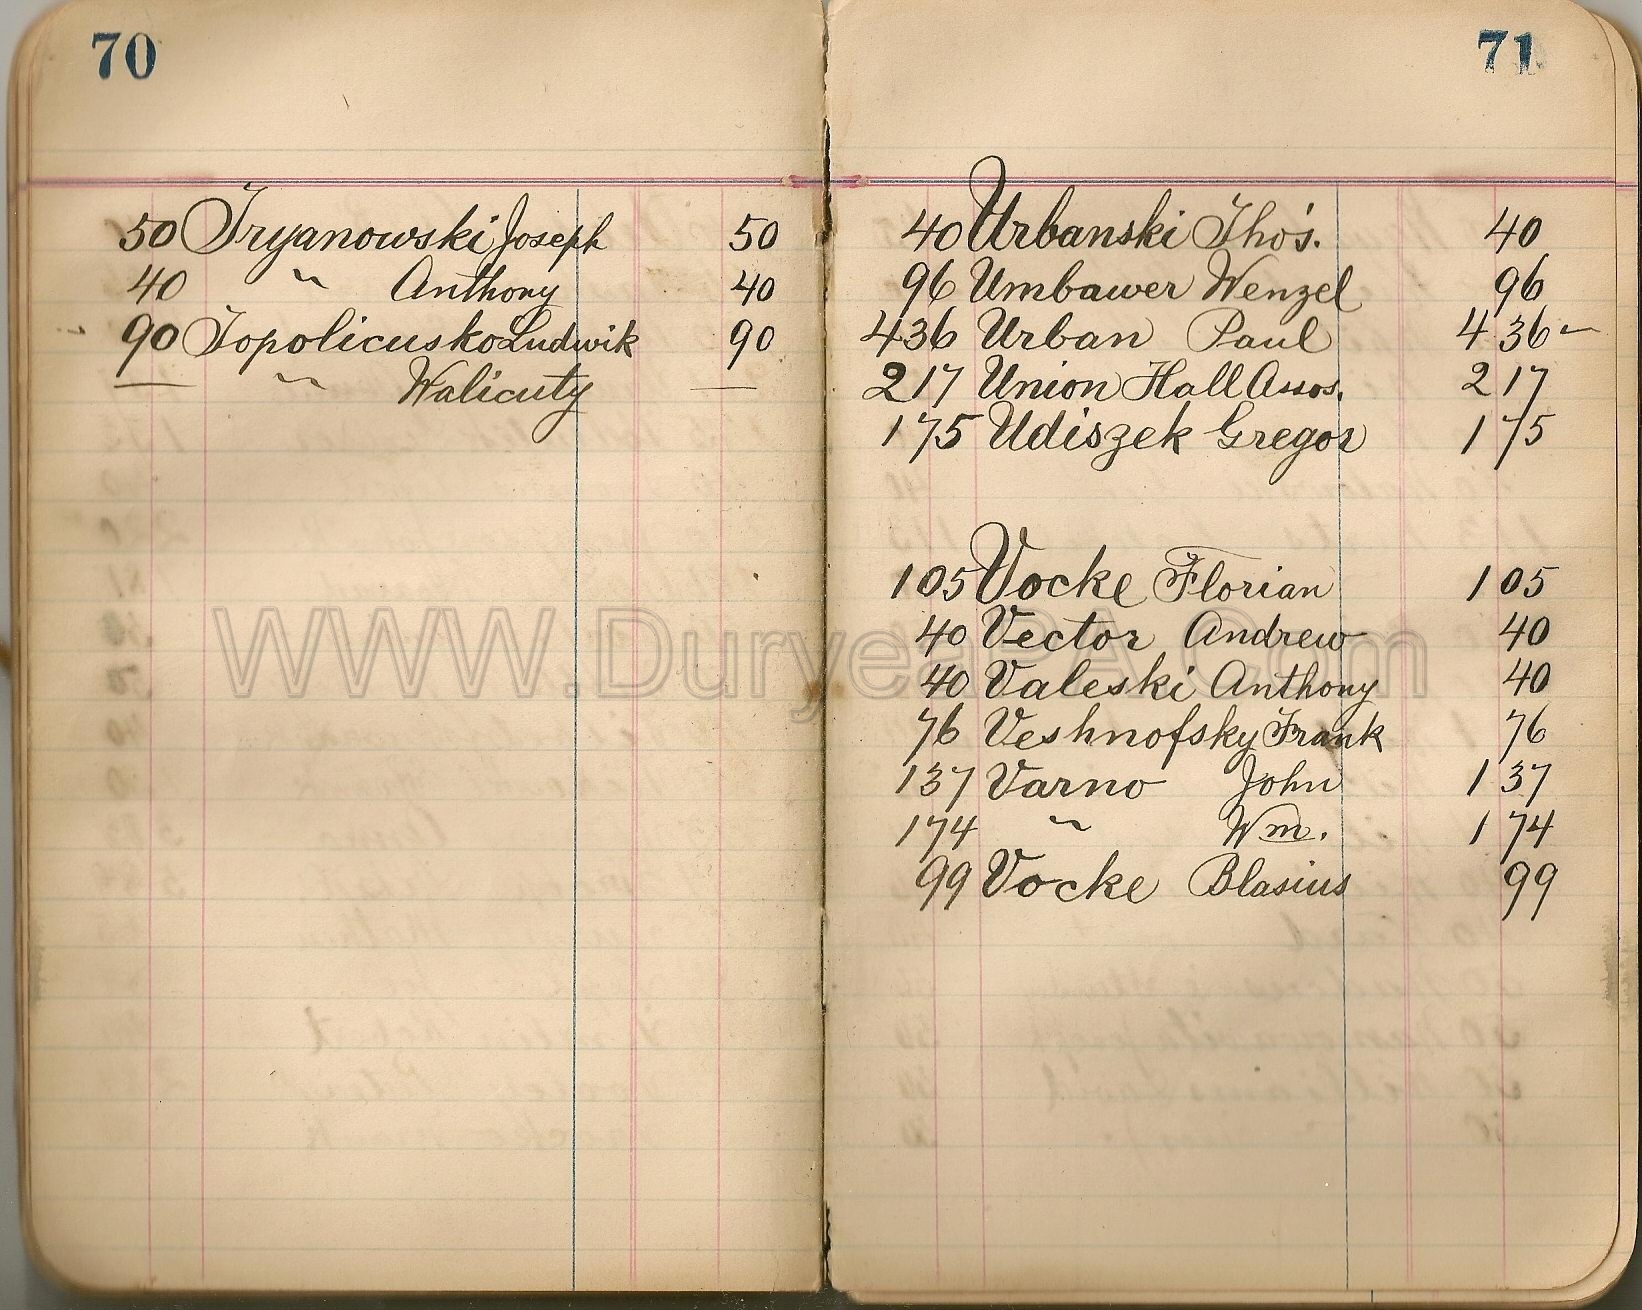 70
50 Tryanowski Joseph 50
40 " Anthony 40
90 Topolicusko Ludwik 90
— " Walicuty —
71
40 Urbanski Tho's. 40
96 Umbawer Wenzel 96
436 Urban Paul 436
217 Union Hall Assos. 217
175 Udiszek Gregor 175
105 Vocke Florian 105
40 Vector Andrew 40
40 Valeski Anthony 40
76 Veshnofsky Frank 76
137 Varno John 137
174 " Wm. 174
99 Vocke Blasius 99
WWW.DuryeaPA.Com